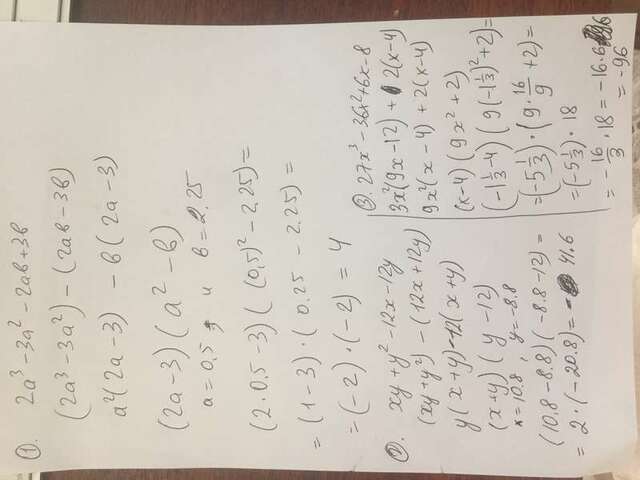 1. 2a³ - 3a² - 2ab + 3b
(2a³ - 3a²) - (2ab - 3b)
a²(2a - 3) - b(2a - 3)
(2a - 3)(a² - b)
a = 0,5 и b = 2,25
(2 · 0,5 - 3)((0,5)² - 2,25) =
= (1 - 3) · (0.25 - 2.25) =
= (-2) · (-2) = 4
2. xy + y² - 12x - 12y
(xy + y²) - (12x + 12y)
y(x + y) - 12(x + y)
(x + y)(y - 12)
x = 10.8, y = -8.8
(10,8 - 8.8)(-8.8 - 12) =
= 2 · (-20.8) = - 41.6
3. 27x³ - 36x² + 6x - 8
3x²(9x - 12) + 2(x - 4)
9x²(x - 4) + 2(x - 4)
(x - 4)(9x² + 2)
(-1 1/3 - 4)(9(-1 1/3)² + 2) =
= (-5 1/3) · (9 · 16/9 + 2) =
= (-5 1/3) · 18
= - 16/3 · 18 = -16.6
= -96